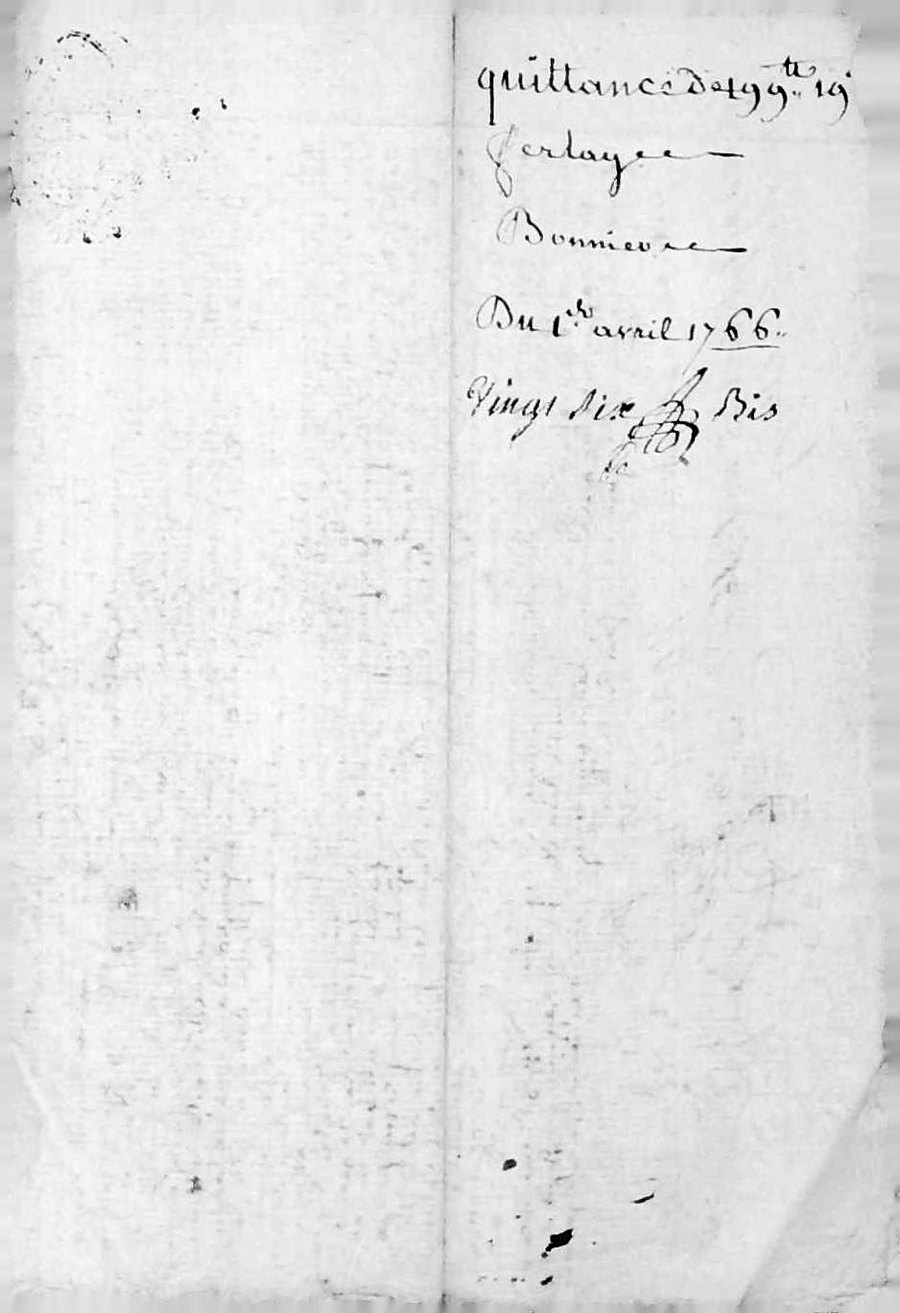 quittance De 199tt 19s
Ferlay
Bonnier
Du 1er avril 1766.
Vingt Six Bis